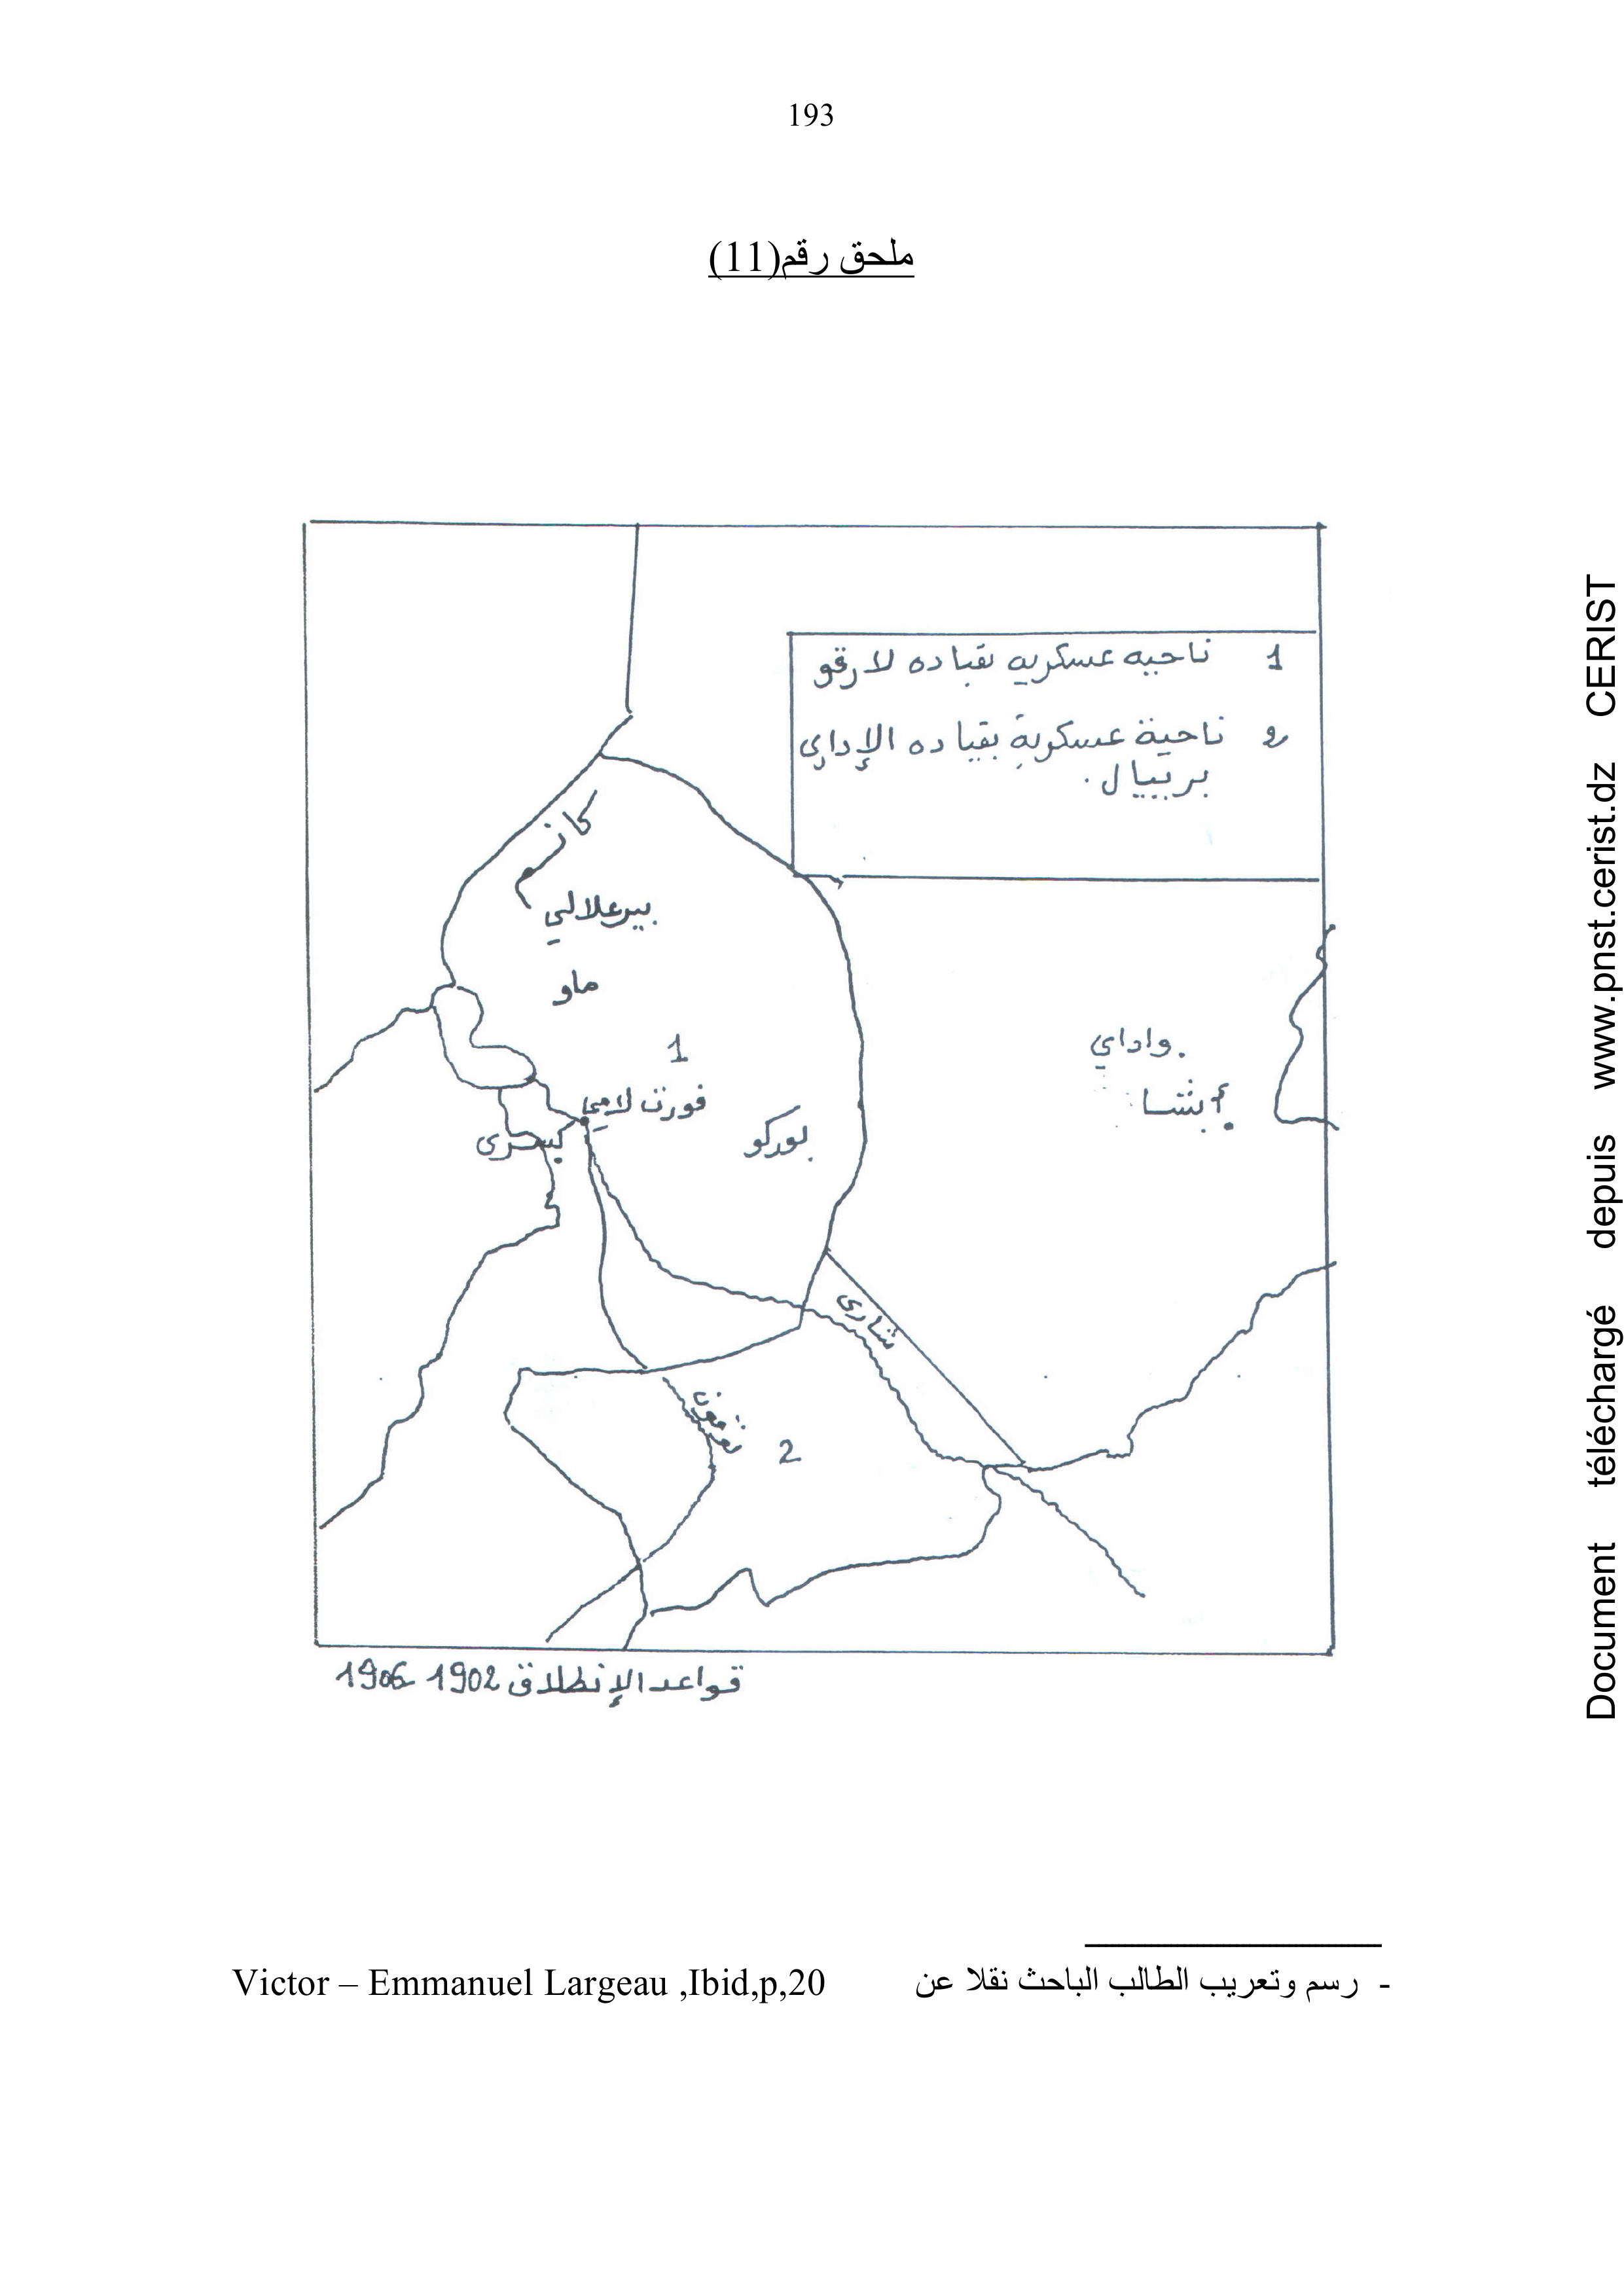 193
ملحق رقم(11)
1 ناحيه عسكريه بقياده لارقو
2 ناحية عسكرية بقياده الإداري
برييال.
كانم
بيرعلالي
ماو
1
فورت لامي
بوركو
واداي
أبشا
شاري
2
قواعد الإنطلاق 1902 1906
- رسم وتعريب الطالب الباحث نقلا عن Victor – Emmanuel Largeau ,Ibid,p,20
Document téléchargé depuis www.pnst.cerist.dz CERIST